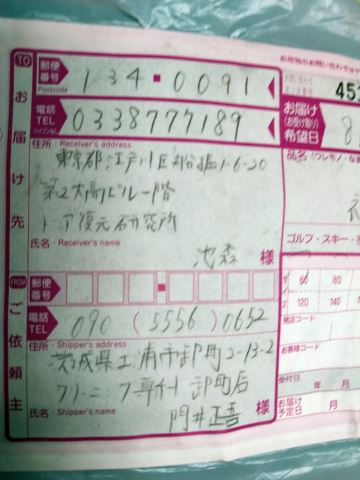 お荷物のお問い合わせは
TO
お届け先
郵便番号
Postcode
134-0091
451
電話
TEL
ハイフンなし
0338777189
お届け
希望日
住所・Receiver's address
東京都江戸川区船堀1-6-20
第2大高ビル一階
ドア復元研究所
氏名・Receiver's name
池森
様
品名
ゴルフ・スキー・
FROM
ご依頼主
郵便番号
60
80
120
140
発店コード
電話
TEL
090(5556)0652
お客様コード
住所・Shipper's address
茨城県土浦市卸町2-13-2
クリーニング専科 卸町店
受付日
年
月
氏名・Shipper's name
門井正喜
様
お届け
予定日
月